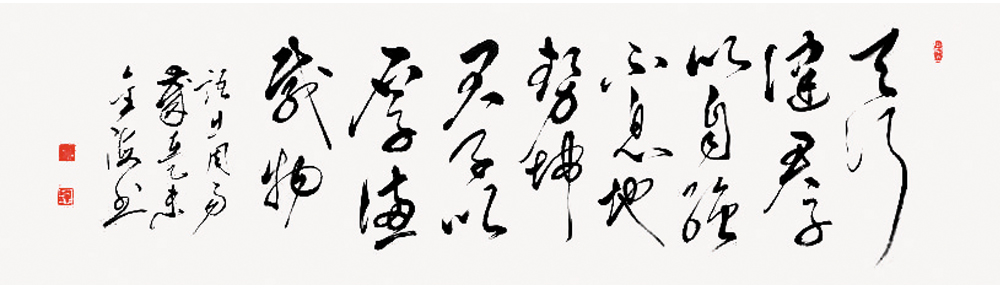 天行
健君子
以自強
不息地
勢坤
君子以
厚德
載物
語出周易
歲在乙未
金海书